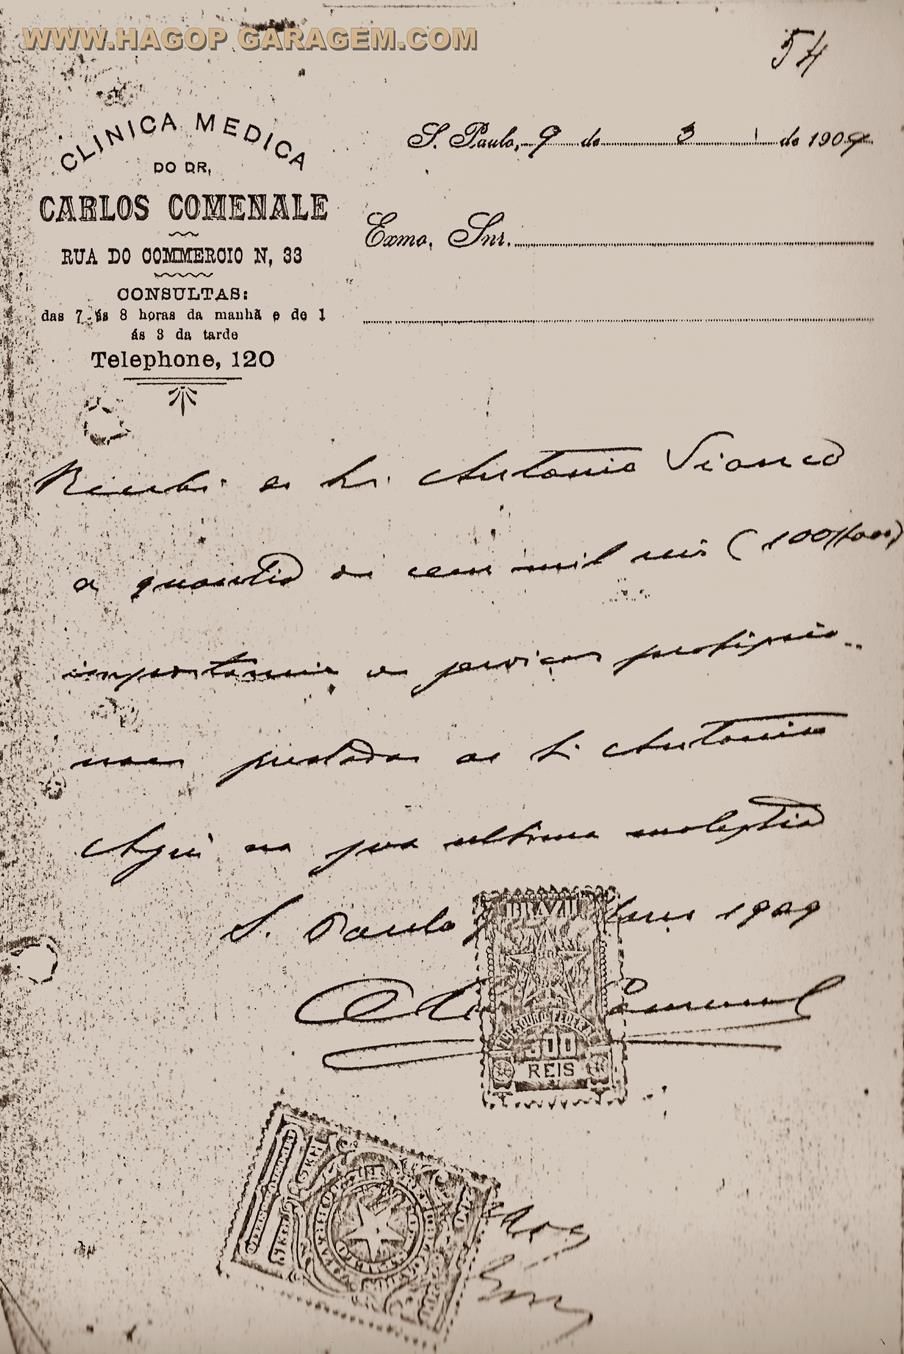 WWW.HAGOP GARAGEM.COM
54
CLINICA MEDICA
DO DR,
CARLOS COMENALE
RUA DO COMMERCIO N, 33
CONSULTAS:
das 7 ás 8 horas da manhã e de 1
ás 3 da tarde
Telephone, 120
S. Paulo, 9 de 3 de 1909
Exmo, Snr.
Recebi do Sr. Antonio
a quantia de cem mil reis (100\
importancia de serviços profissio-
naes prestados ao Sr. Antonio
Agù na sua ultima molestia
S. Paulo 1909
BRAZIL
THESOURO FEDERAL
300
REIS